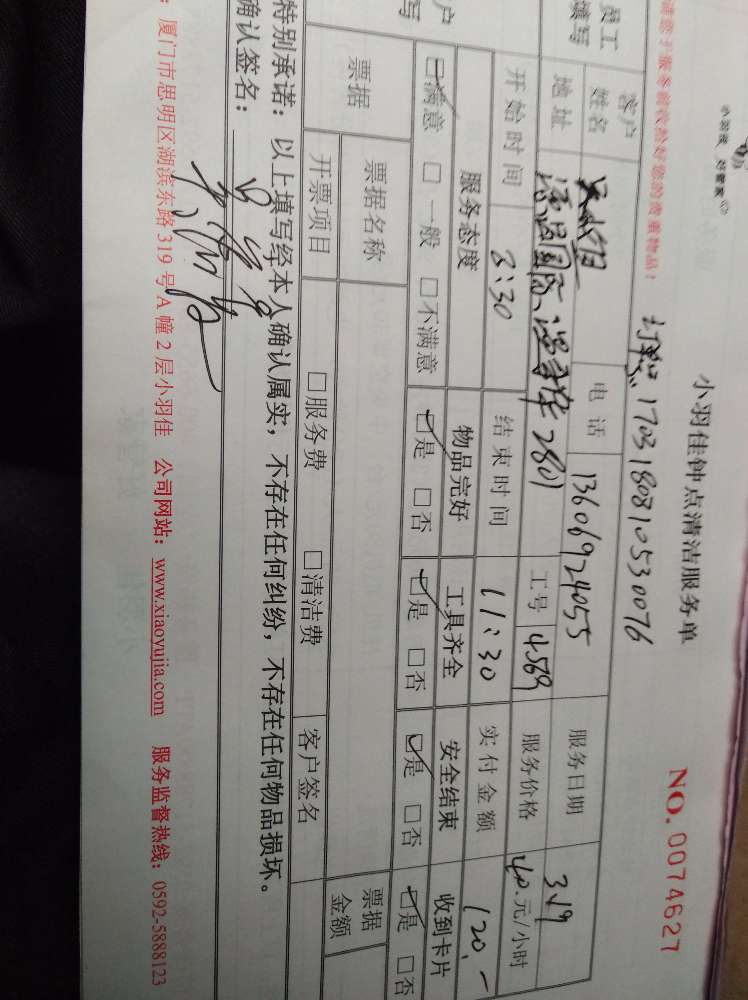 小羽佳 好管家
小羽佳钟点清洁服务单
NO. 0074627
请您于服务前收拾好您的贵重物品！ 17031808105530076
员工填写
客户姓名 电话 13606924055 服务日期 3.19
地址 源昌国际 2801 工号 4569 服务价格 40.元/小时
开始时间 8:30 结束时间 11:30 实付金额 120.-
户写
服务态度 物品完好 工具齐全 安全结束 收到卡片
☑满意 □一般 □不满意 ☑是 □否 ☑是 □否 ☑是 □否 ☑是 □否
票据 票据名称 票据金额
开票项目 □服务费 □清洁费 客户签名
特别承诺：以上填写经本人确认属实，不存在任何纠纷，不存在任何物品损坏。
确认签名：
：厦门市思明区湖滨东路319号A幢2层小羽佳 公司网站：www.xiaoyujia.com 服务监督热线：0592-5888123